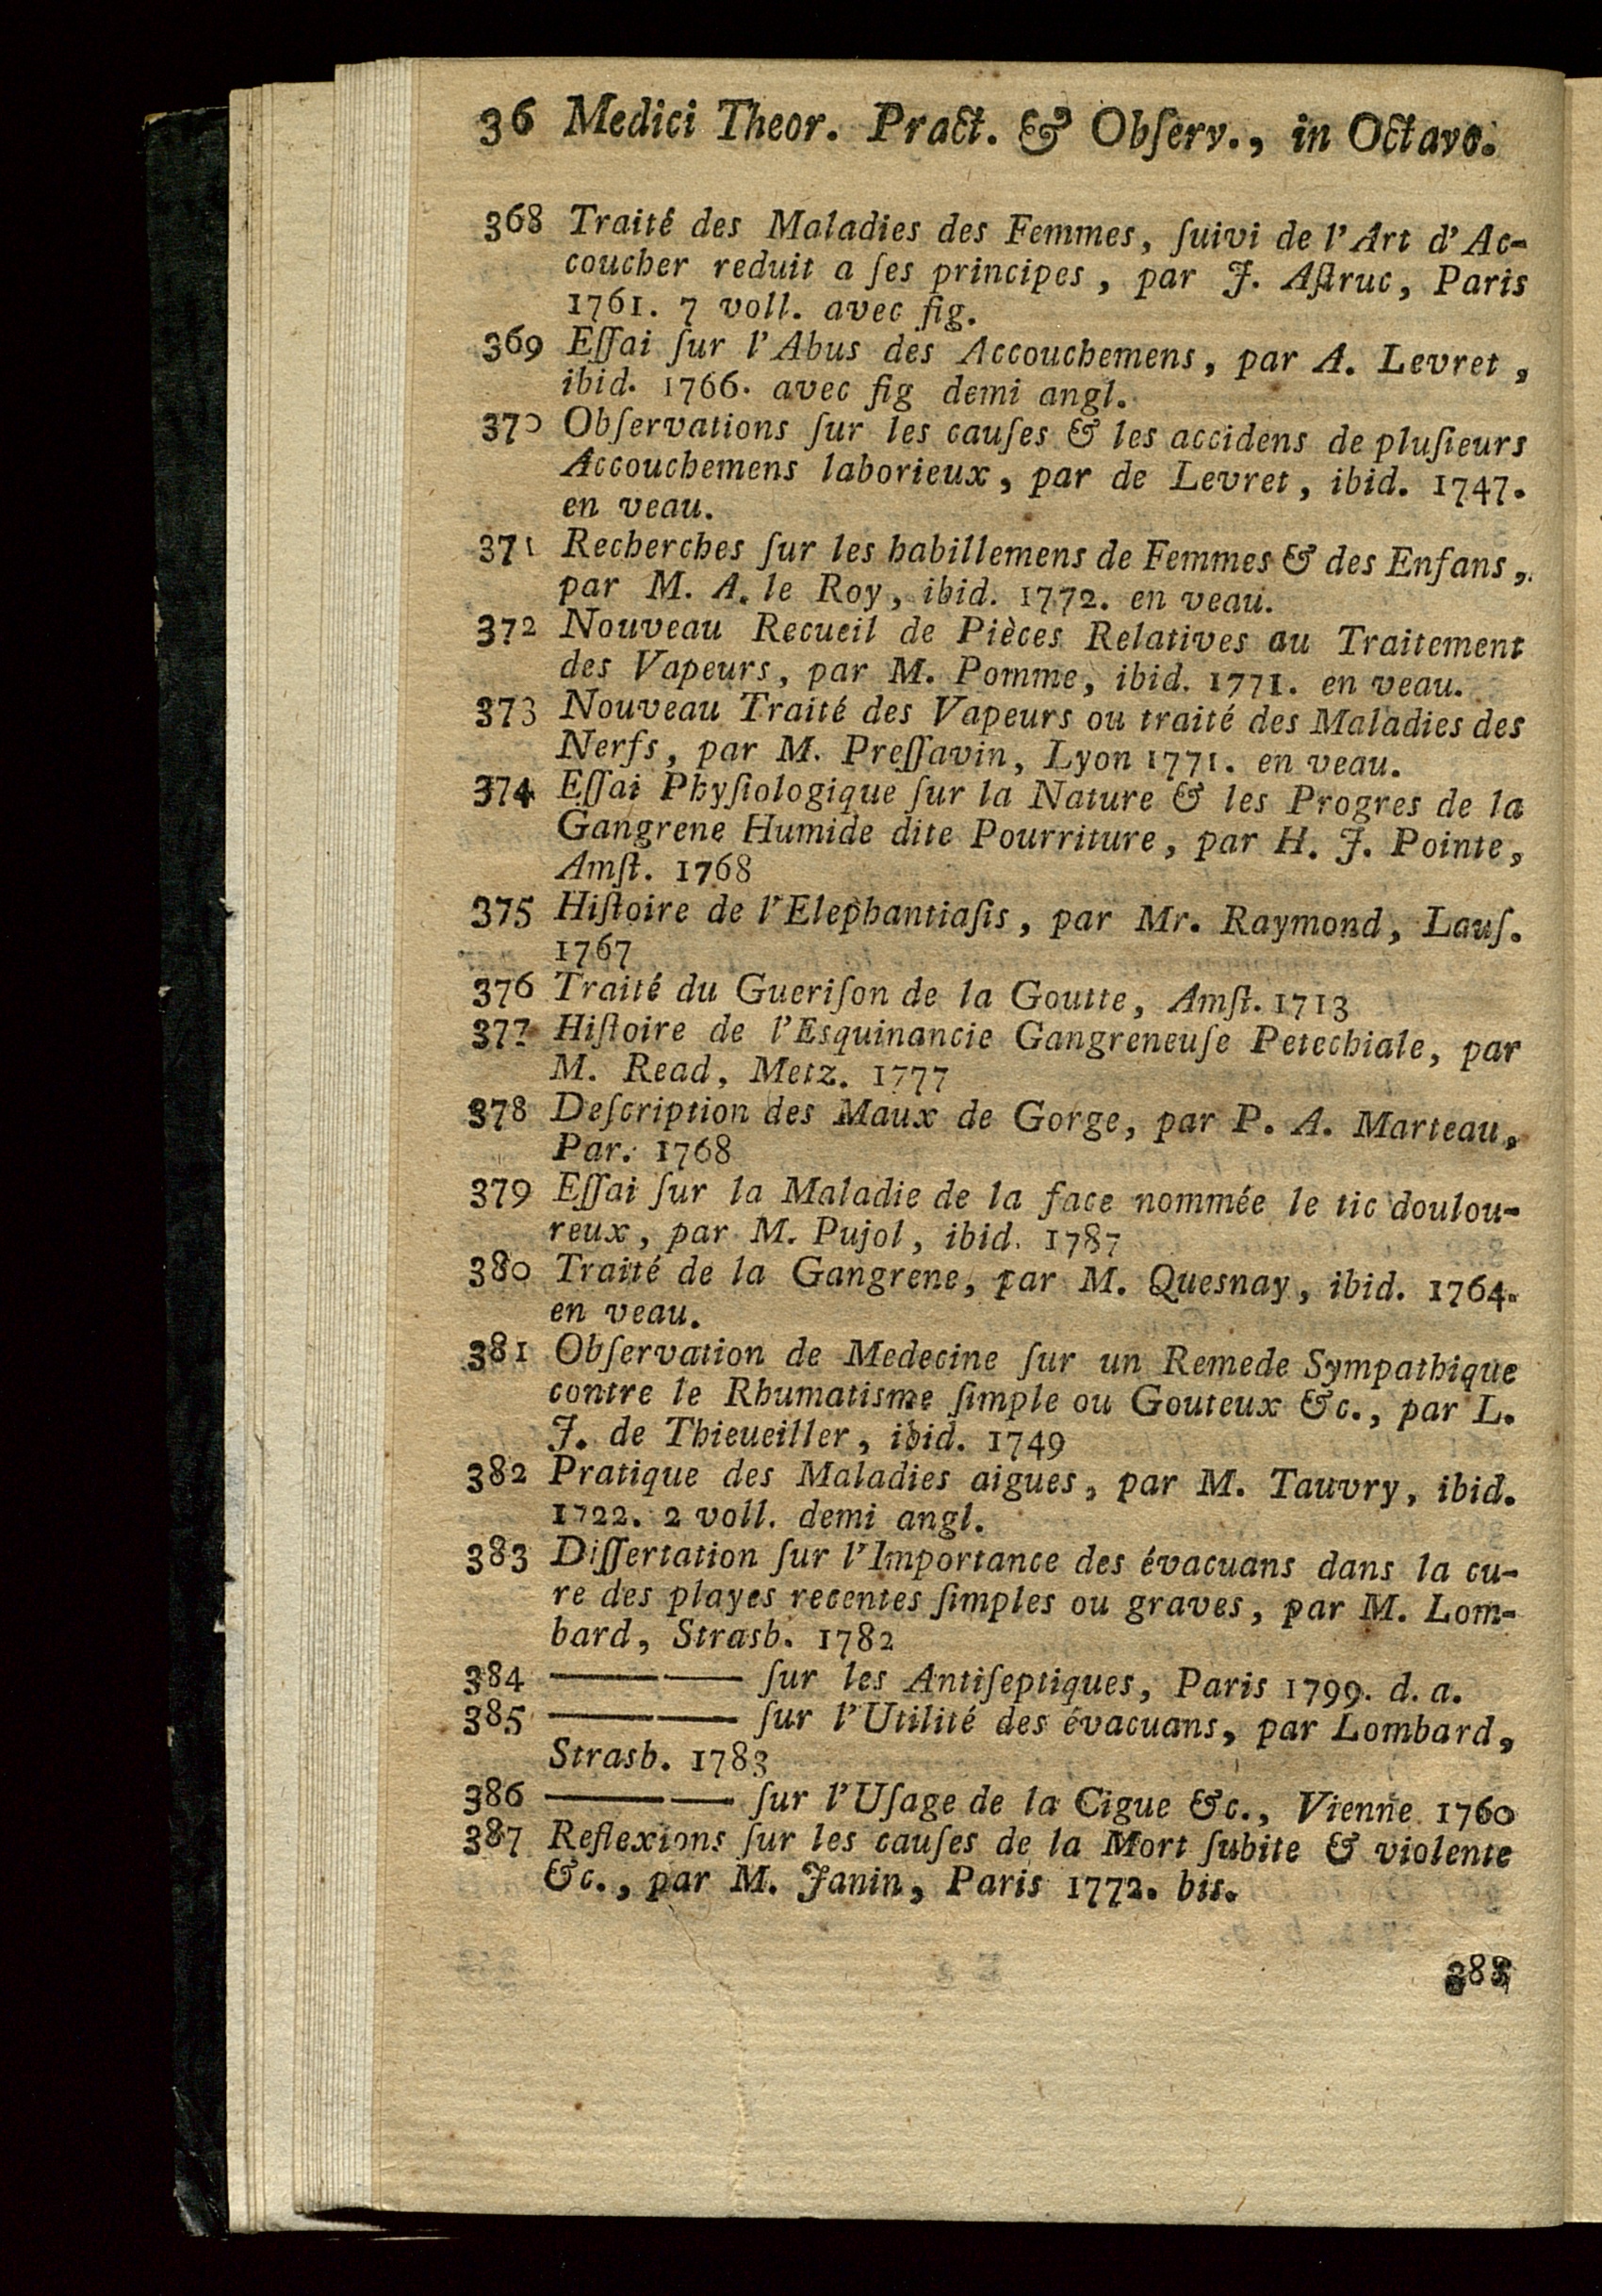 36 Medici Theor. Pract. & Obſerv., in Octavo.
368 Traité des Maladies des Femmes, ſuivi de l'Art d'Ac-
coucher reduit a ſes principes, par J. Aſtruc, Paris
1761. 7 voll. avec fig.
369 Eſſai ſur l'Abus des Accouchemens, par A. Levret,
ibid. 1766. avec fig demi angl.
370 Obſervations ſur les cauſes & les accidens de pluſieurs
Accouchemens laborieux, par de Levret, ibid. 1747.
en veau.
371 Recherches ſur les habillemens de Femmes & des Enfans,
par M. A. le Roy, ibid. 1772. en veau.
372 Nouveau Recueil de Pièces Relatives au Traitement
des Vapeurs, par M. Pomme, ibid. 1771. en veau.
373 Nouveau Traité des Vapeurs ou traité des Maladies des
Nerfs, par M. Preſſavin, Lyon 1771. en veau.
374 Eſſai Phyſiologique ſur la Nature & les Progres de la
Gangrene Humide dite Pourriture, par H. J. Pointe,
Amſt. 1768
375 Hiſtoire de l'Elephantiaſis, par Mr. Raymond, Lauſ.
1767
376 Traité du Gueriſon de la Goutte, Amſt. 1713
377 Hiſtoire de l'Esquinancie Gangreneuſe Petechiale, par
M. Read, Metz. 1777
378 Deſcription des Maux de Gorge, par P. A. Marteau,
Par. 1768
379 Eſſai ſur la Maladie de la face nommée le tic doulou-
reux, par M. Pujol, ibid. 1787
380 Traité de la Gangrene, par M. Quesnay, ibid. 1764.
en veau.
381 Obſervation de Medecine ſur un Remede Sympathique
contre le Rhumatisme ſimple ou Gouteux &c., par L.
J. de Thieueiller, ibid. 1749
382 Pratique des Maladies aigues, par M. Tauvry, ibid.
1722. 2 voll. demi angl.
383 Diſſertation ſur l'Importance des évacuans dans la cu-
re des playes recentes ſimples ou graves, par M. Lom-
bard, Strasb. 1782
384 ——— —— ſur les Antiſeptiques, Paris 1799. d. a.
385 ——— —— ſur l'Utilité des évacuans, par Lombard,
Strasb. 1783
386 ——— —— ſur l'Uſage de la Cigue &c., Vienne 1760
387 Reflexions ſur les cauſes de la Mort ſubite & violente
&c., par M. Janin, Paris 1772. bis.
388